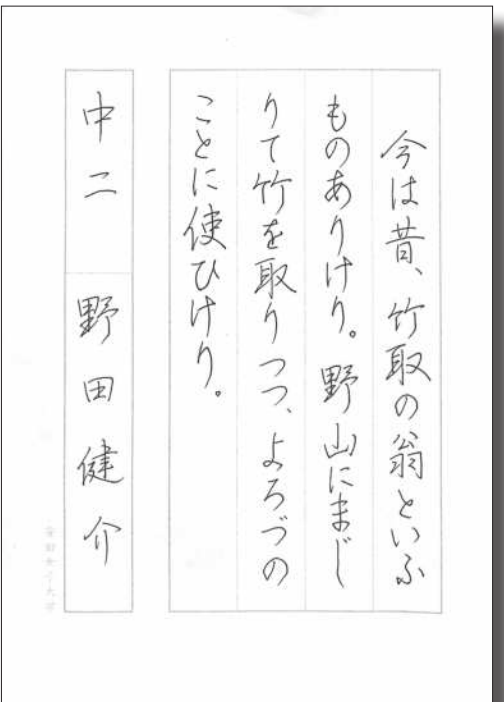 今は昔、竹取の翁といふ
ものありけり。野山にまじ
りて竹を取りつつ、よろづの
ことに使ひけり。
中二 野田健介